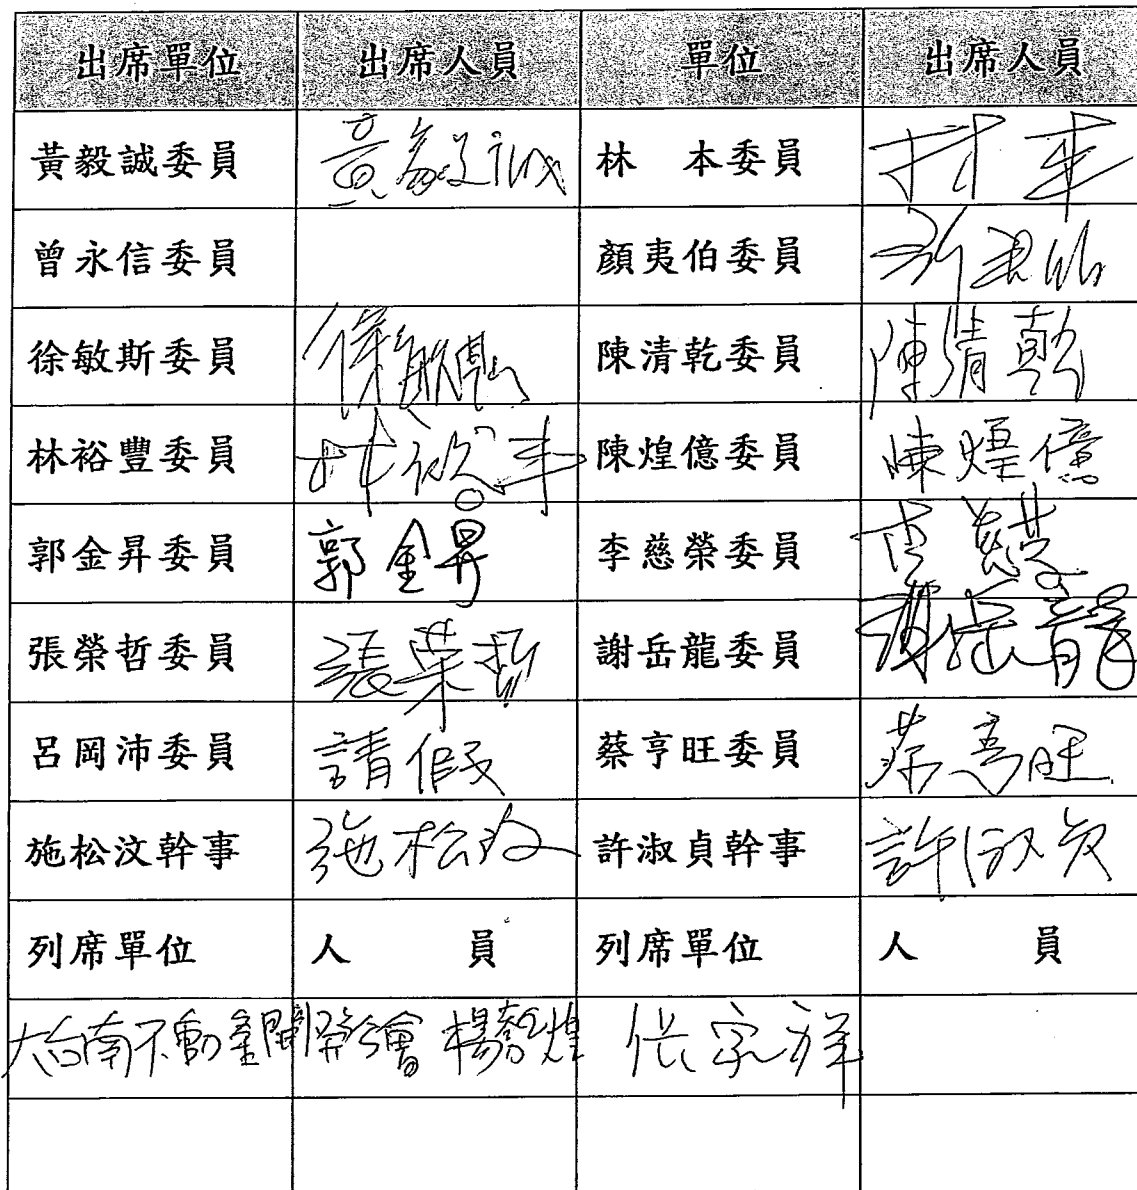 出席單位 出席人員 單位 出席人員
黃毅誠委員 黃毅誠 林 本委員 林本
曾永信委員 顏夷伯委員
徐敏斯委員 陳清乾委員 陳清乾
林裕豐委員 林裕丰 陳煌億委員 陳煌億
郭金昇委員 郭金昇 李慈榮委員 李慈榮
張榮哲委員 張荣哲 謝岳龍委員 謝岳龍
呂岡沛委員 請假 蔡亨旺委員 蔡亨旺
施松汶幹事 施松汶 許淑貞幹事 許淑貞
列席單位 人 員 列席單位 人 員
大台南不動產開發公會 楊 煌 宗祥